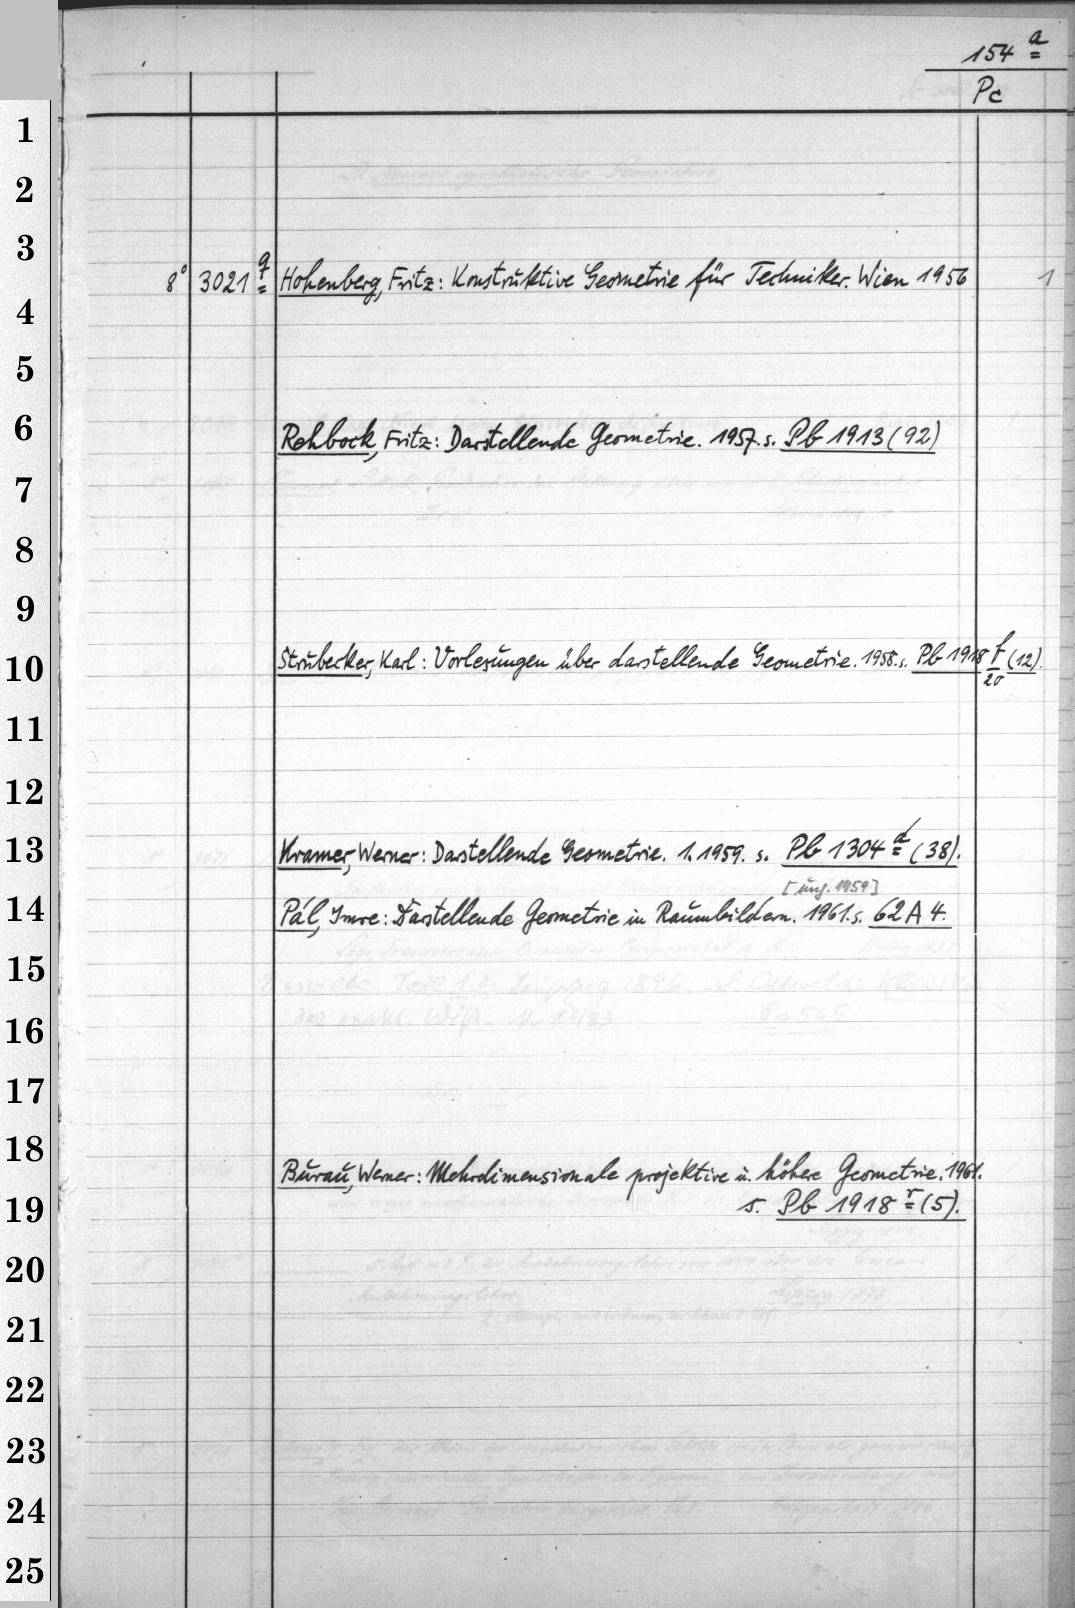 154 a
Pc
1
2
3
8° 3021 q Hohenberg, Fritz: Konstruktive Geometrie für Techniker. Wien 1956 1
4
5
6
Rehbock, Fritz: Darstellende Geometrie. 1957. s. Pb 1913 (92)
7
8
9
10
Strubecker, Karl: Vorlesungen über darstellende Geometrie. 1958. s. Pb 1918 f/20 (12).
11
12
13
Kramer, Werner: Darstellende Geometrie. 1. 1959. s. Pb 1304 a (38).
[ung. 1959]
14
Pál, Imre: Darstellende Geometrie in Raumbildern. 1961. s. 62 A 4.
15
16
17
18
Burau, Werner: Mehrdimensionale projektive u. höhere Geometrie. 1961.
19
s. Pb 1918 r (5).
20
21
22
23
24
25